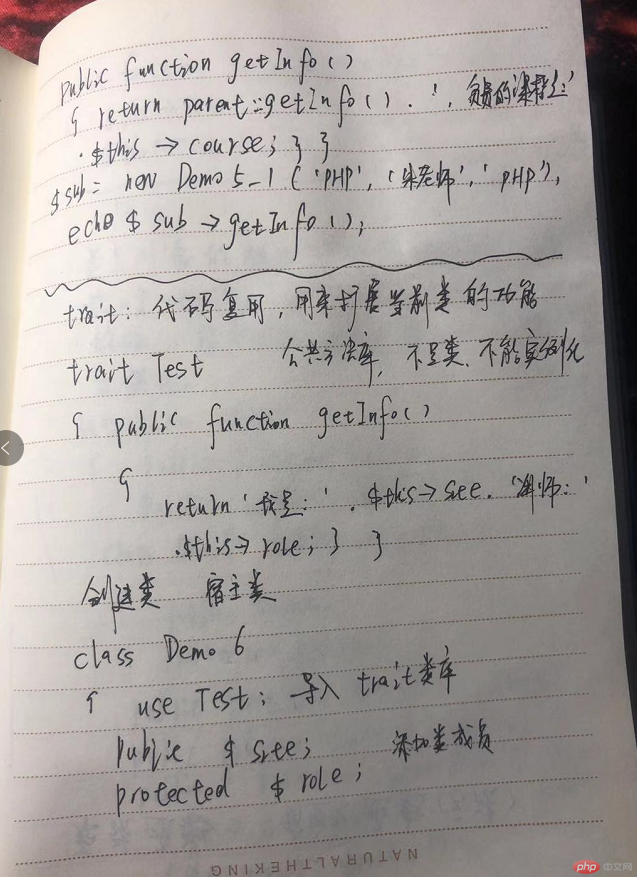 public function getInfo()
{ return parent::getInfo() . ', 负责的课程是:'
. $this -> course; } }
$sub = new Demo5_1 ('PHP', '朱老师', 'PHP');
echo $sub -> getInfo();
trait: 代码复用, 用来扩展当前类的功能
trait Test 公共方法库, 不是类, 不能实例化
{ public function getInfo()
{
return '我是:' . $this -> site . '讲师:'
. $this -> role; } }
创建类 宿主类
class Demo6
{ use Test; 导入 trait类库
public $site; 添加类成员
protected $role;
NATURALTHEKING
php 中文网